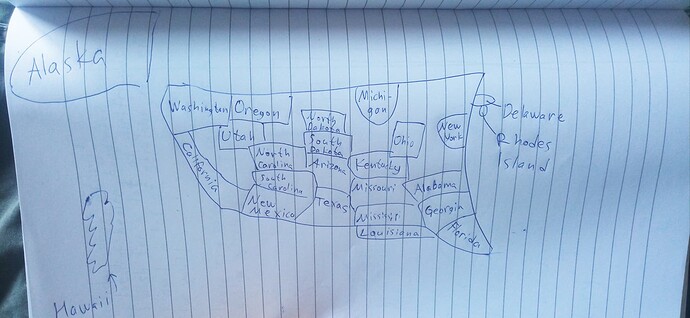 Alaska
Washington
Oregon
Michi-
gan
North
Dakota
Ohio
New
York
Delaware
Rhodes
Island
Utah
South
Dakota
California
North
Carolina
Arizona
Kentucky
South
Carolina
Missouri
Alabama
New
Mexico
Texas
Georgia
Mississipi
Louisiana
Florida
Hawaii